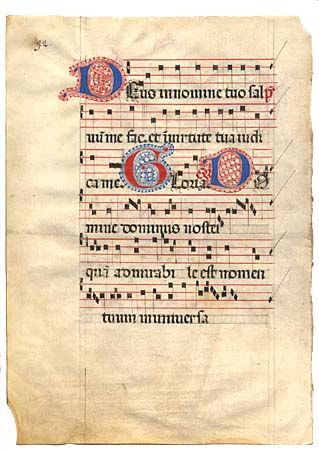 DEus in nomine tuo sal
uū me fac. et in uirtute tua iudi
ca me. Gloria Do
mine dominus noster
quā admirabi le est nomen
tuum in uniuersa